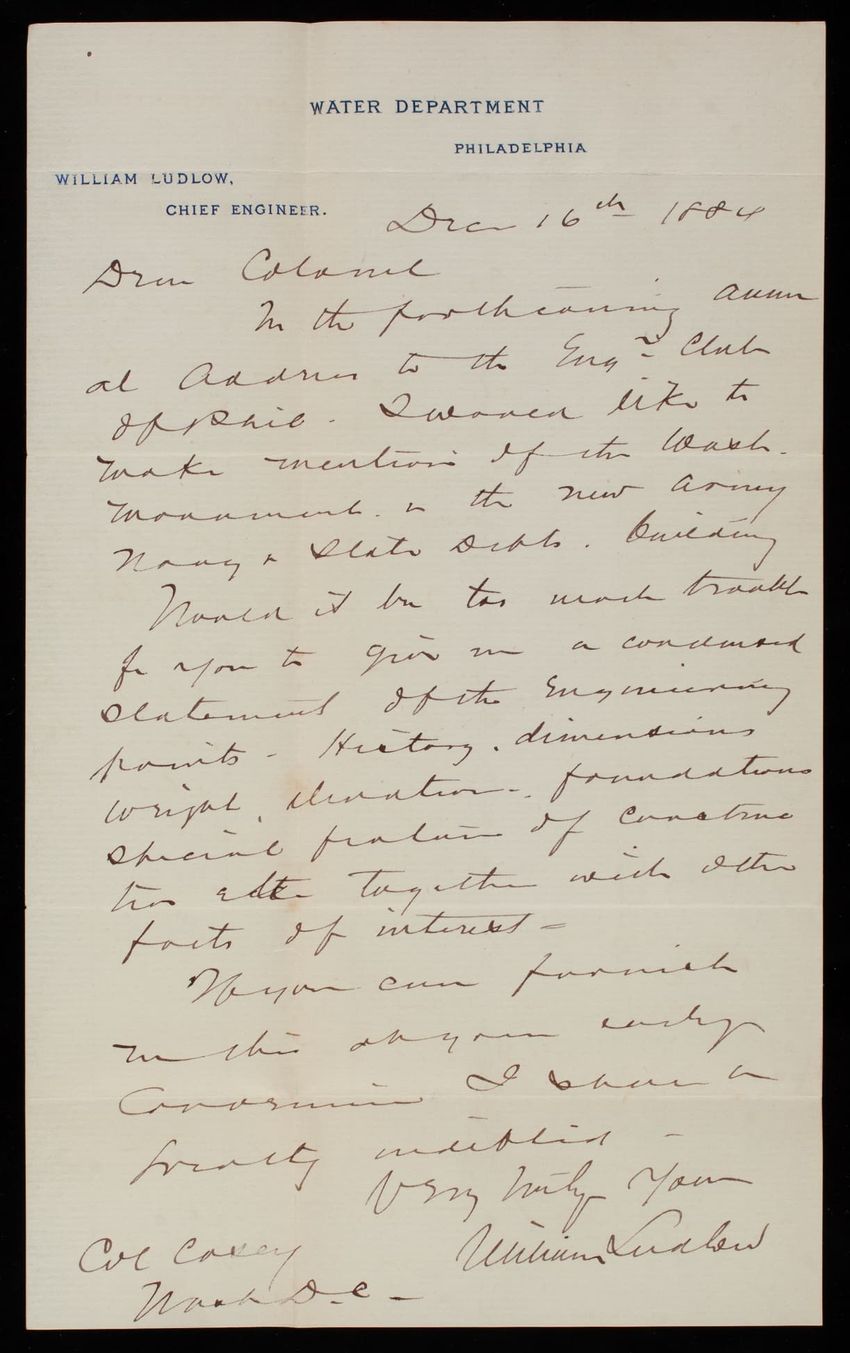 WATER DEPARTMENT
PHILADELPHIA
WILLIAM LUDLOW,
CHIEF ENGINEER.
Dec 16th 1884
Dear Colonel
In the forthcoming annu
al Address to the Engrs Club
of Phil. I would like to
make mention of the Wash.
Monument & the new Army
Navy & State Depts. building
Would it be too much trouble
for you to give me a condensed
statement of the Engineering
points - History, dimensions
weight, elevation, foundations
special feature of construc
tion etc together with other
facts of interest -
If you can furnish
me this at your early
convenience I shall be
greatly indebted -
Very truly Yours
William Ludlow
Col Casey
Wash D.C -